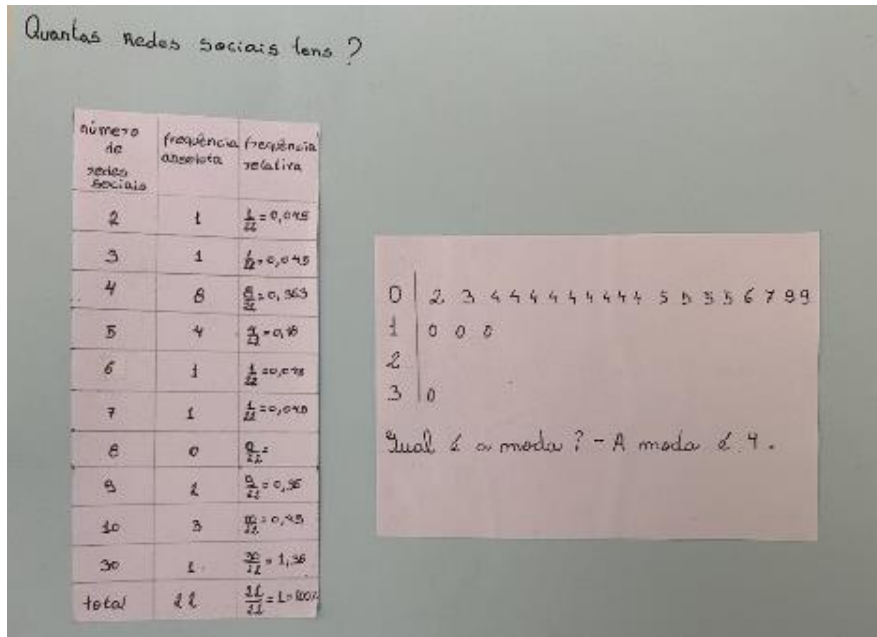 Quantas Redes Sociais tens ?
número de redes sociais | frequência absoluta | frequência relativa
2 | 1 | 1/22 = 0,045
3 | 1 | 1/22 = 0,045
4 | 8 | 8/22 = 0,363
5 | 4 | 4/22 = 0,18
6 | 1 | 1/22 = 0,045
7 | 1 | 1/22 = 0,045
8 | 0 | 0/22 =
9 | 2 | 9/22 = 0,36
10 | 3 | 10/22 = 0,45
30 | 1 | 30/22 = 1,36
total | 22 | 22/22 = 1 = 100%
0 | 2 3 4 4 4 4 4 4 4 4 5 5 5 5 6 7 9 9
1 | 0 0 0
2
3 | 0
Qual é a moda ? - A moda é 4.